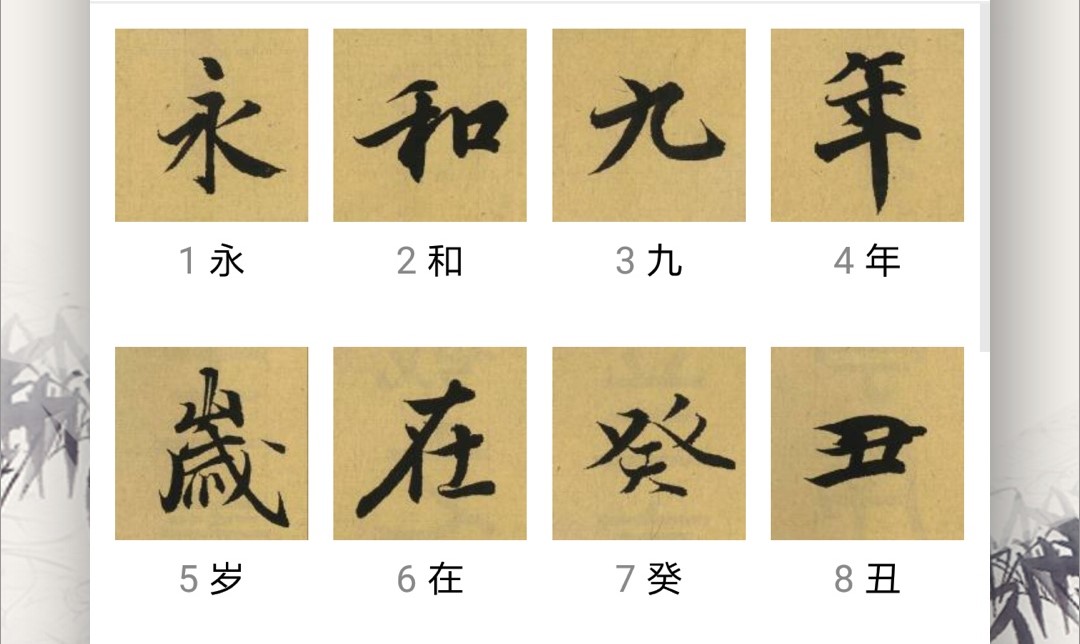 永 和 九 年
1 永 2 和 3 九 4 年
歲 在 癸 丑
5 岁 6 在 7 癸 8 丑